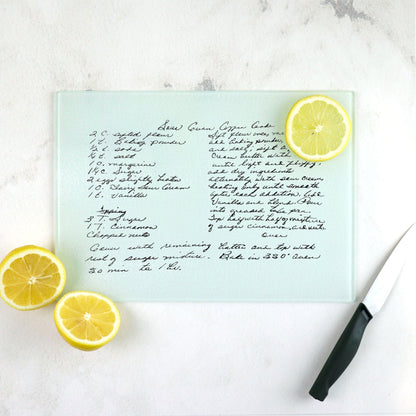 Sour Cream Coffee Cake
2 C. sifted flour
1 t. Baking Powder
½ t. soda
¼ t. salt
1 C. margarine
1¼ C. Sugar
2 eggs slightly beaten
1 C. Dairy Sour Cream
1 t. Vanilla
Topping
3 T. Sugar
1 T. Cinnamon
Chopped nuts
Sift flour once,
add baking powder,
and salt, sift
Cream butter with
until light and fluffy.
add dry ingredients
alternately with sour cream
beating only until smooth
after each addition. Add
Vanilla and blend. Pour
into greased pan.
Top half with half of mixture
of sugar cinnamon, and nuts
Over
Cover with remaining batter and top with
rest of sugar mixture. Bake in 350° oven
50 min to 1 hr.